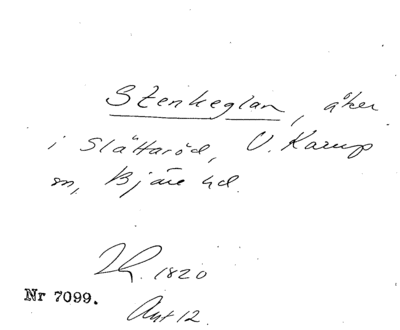 Stenkeglan, åker
i Slättaröd, V. Karup
sn, Bjäre hd.
1820
Nr 7099.
Akt 12.